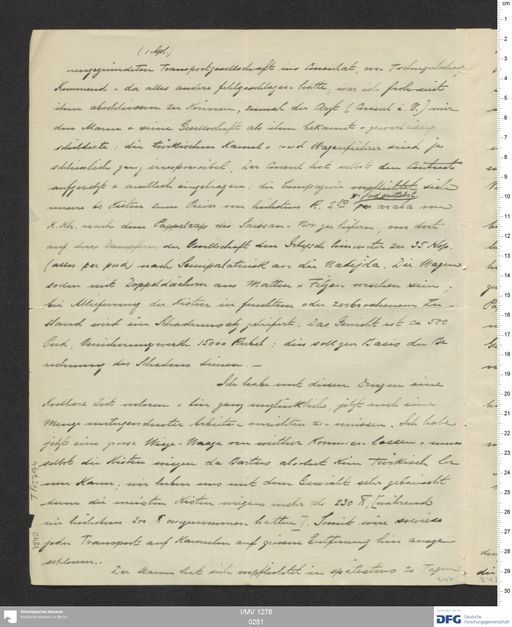 (1 Apl.)
neugegründeten Transportgesellschaft ins Consulat, von
kommend & da alles andere fehlgeschlagen hatte, war ich froh mit
ihm abschliessen zu können, zumal der Arzt (Consul i. V.) mir
den Mann & seine Gesellschaft als ihm bekannt & zuverlässig
schilderte; die türkischen Kameel- und Wagenführer sind ja
schliesslich ganz irresponsibel. Der Consul hat selbst den Contract
aufgesetzt & amtlich eingetragen; die Compagnie verpflichtet sich
unsere Kisten zum Preise von höchstens R. 2
nach dem des Saissan-Nor zu liefern, von dort
auf den Dampfern der Gesellschaft den Irtysch hinunter zu 35 Kop.
(alles per pud) nach Semipalatinsk an die Nadejda. Die Wagen
sollen mit Doppeldächern aus Matten & Filzen versehen sein,
bei Ablieferung der Kisten in feuchtem oder zerbrochenem Zu-
stand wird ein Schadenersatz geliefert. Das Gewicht ist ca 500
Pud, Versicherungswerth 15000 Rubel: dies soll zur Basis der Be-
rechnung des Schadens dienen. —
Ich habe mit diesen Dingen eine
kostbare Zeit verloren & bin ganz unglücklich, jetzt noch eine
Menge untergeordneter Arbeiten verrichten zu müssen. Ich habe
jetzt eine grosse Waage von kommen lassen &
selbst die Kisten wiegen da Bartus absolut kein Türkisch ler-
nen kann; wir haben uns mit dem Gewicht sehr getäuscht
denn die meisten Kisten wiegen mehr als 230 ℔, [während
wir höchstens 200 ℔ angenommen hatten]. Somit wäre sowieso
jeder Transport auf Kameelen auf grosse Entfernung hin ausge-
schlossen..
Der Mann hat sich verpflichtet in spätestens 20 Tagen
I/MV 1278
0251
Ethnologisches Museum
Staatliche Museen zu Berlin
gefördert durch
DFG Deutsche
Forschungsgemeinschaft